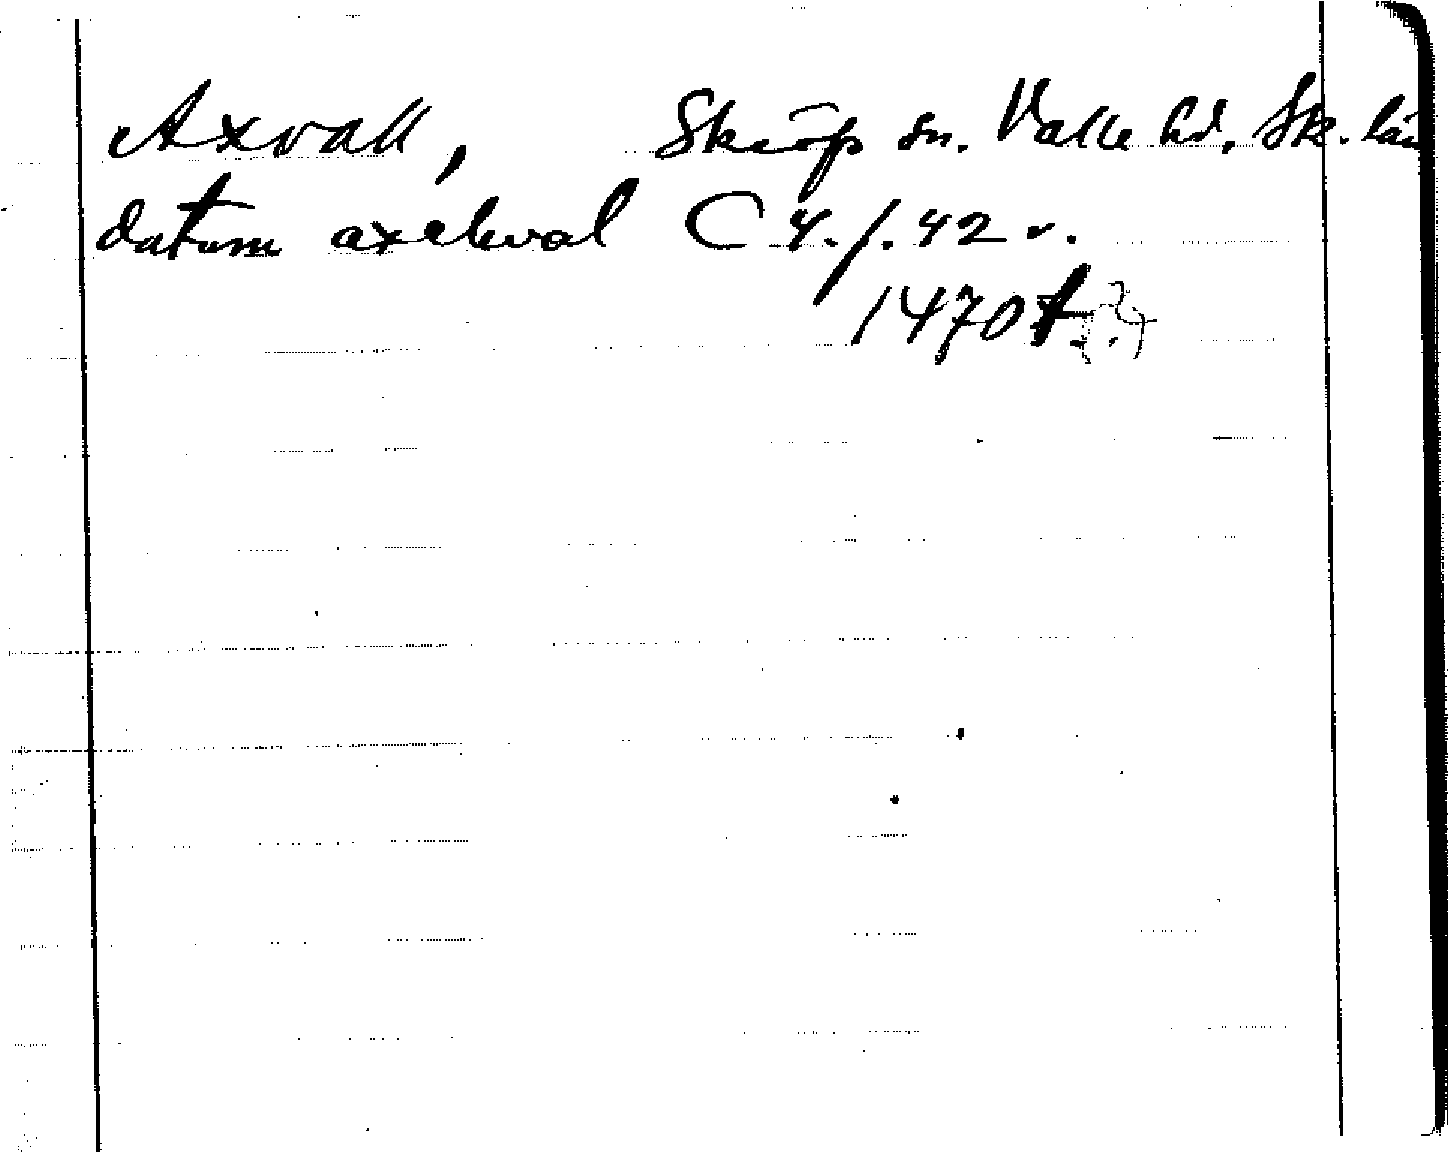 Axvall, Skärp sn. Valle hd. Sk. län
datum axehval C 4./. 42 v.
1470 t. (?)